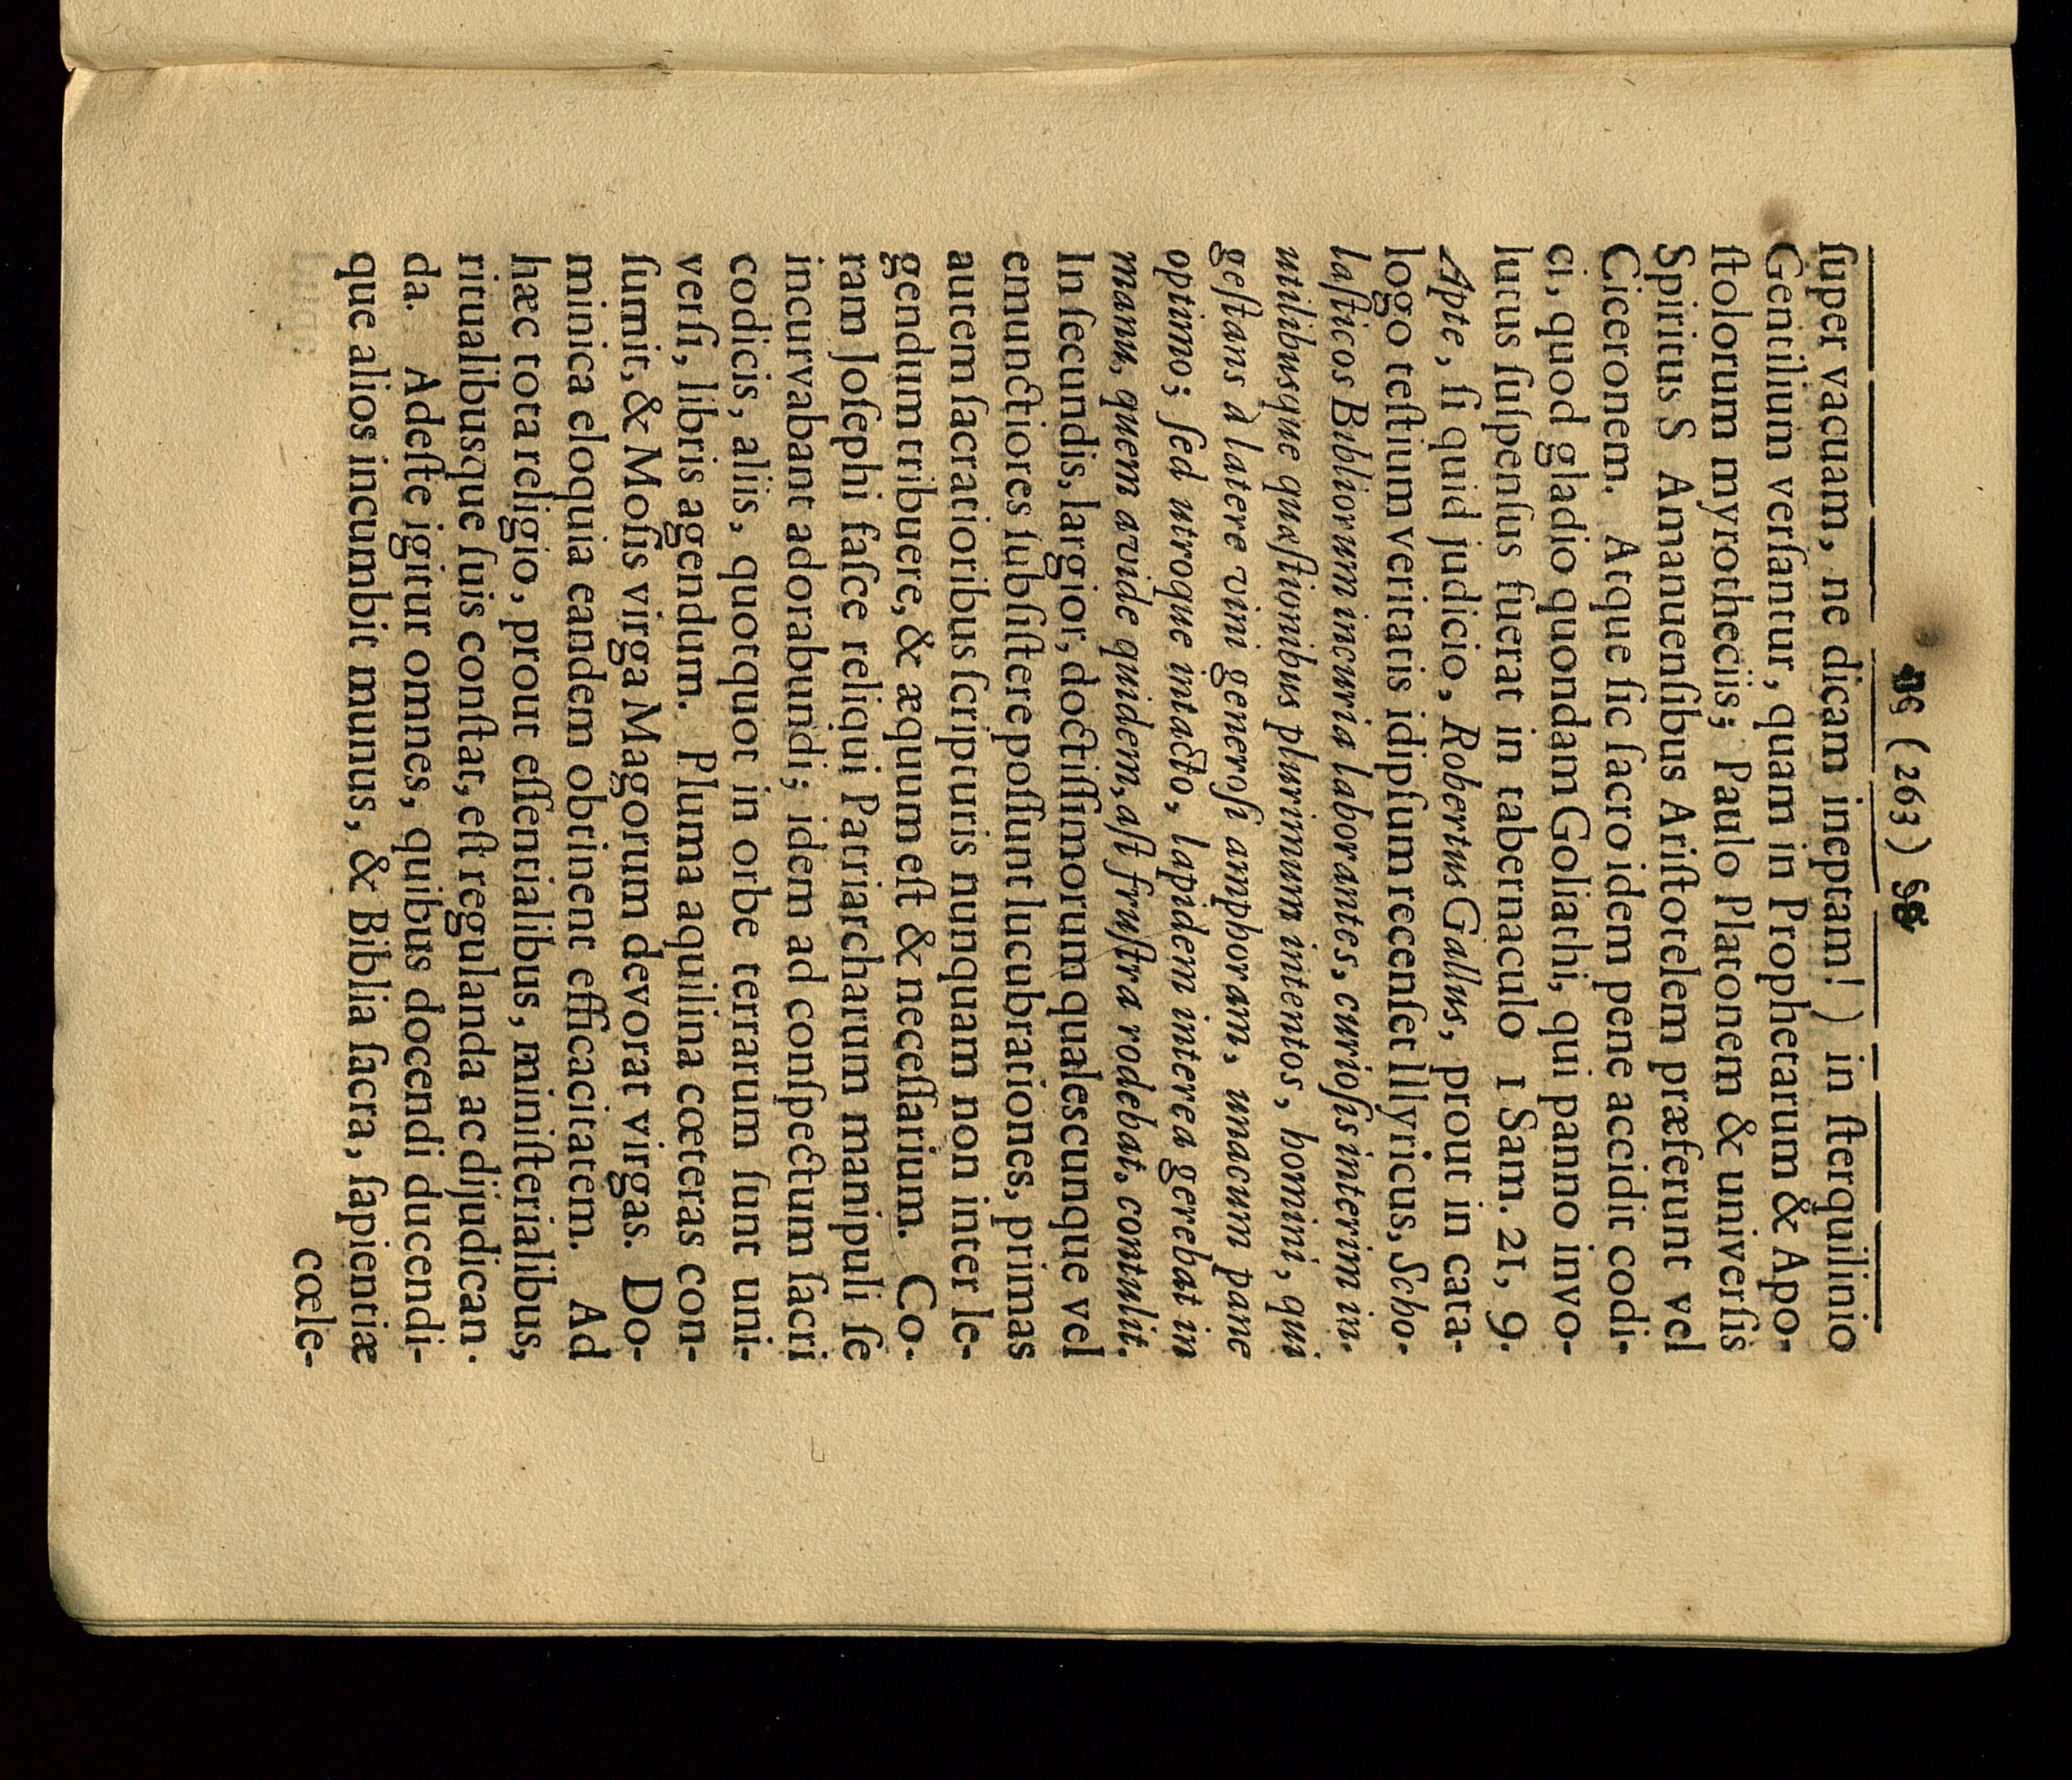 (263)
ſuper vacuam, ne dicam ineptam!) in ſterquilinio
Gentilium verſantur, quam in Prophetarum & Apo-
ſtolorum myrotheciis; Paulo Platonem & univerſis
Spiritus S Amanuenſibus Ariſtotelem præferunt vel
Ciceronem. Atque ſic ſacro idem pene accidit codi-
ci, quod gladio quondam Goliathi, qui panno invo-
lutus ſuſpenſus fuerat in tabernaculo 1 Sam. 21, 9.
Apte, ſi quid judicio, Robertus Gallus, prout in cata-
logo teſtium veritatis idipſum recenſet Illyricus, Scho-
laſticos Bibliorum incuria laborantes, curioſis interim in-
utilibusque quæſtionibus plurimum intentos, homini, qui
geſtans à latere vini generoſi amphoram, unacum pane
optimo; ſed utroque intacto, lapidem interea gerebat in
manu, quem avide quidem, aſt fruſtra rodebat, contulit.
In ſecundis, largior, doctiſſimorum qualescunque vel
emunctiores ſubſiſtere poſſunt lucubrationes, primas
autem ſacratioribus ſcripturis nunquam non inter le-
gendum tribuere, & æquum eſt & neceſſarium. Co-
ram Joſephi faſce reliqui Patriarcharum manipuli ſe
incurvabant adorabundi; idem ad conſpectum ſacri
codicis, aliis, quotquot in orbe terrarum ſunt uni-
verſi, libris agendum. Pluma aquilina cœteras con-
ſumit, & Moſis virga Magorum devorat virgas. Do-
minica eloquia eandem obtinent efficacitatem. Ad
hæc tota religio, prout eſſentialibus, miniſterialibus,
ritualibusque ſuis conſtat, eſt regulanda ac dijudican-
da. Adeſte igitur omnes, quibus docendi ducendi-
que alios incumbit munus, & Biblia ſacra, ſapientiæ
cœle-